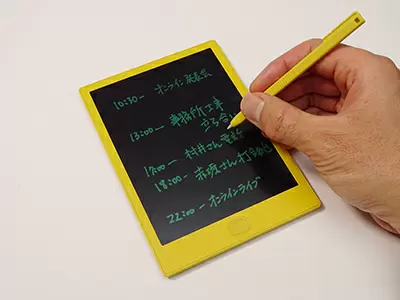 10:30- オンライン発表会
13:00- 事務所工事
立ち合い
17:00- 村井さん電話
18:00- 赤坂さん打
22:00- オンラインライブ